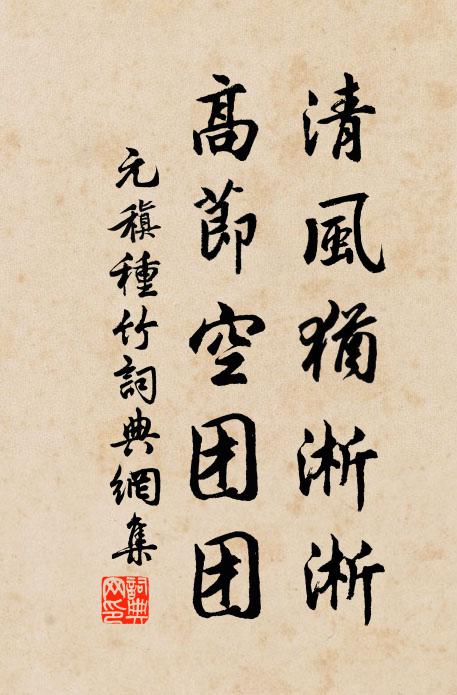 清風猶淅淅
高節空团团
元稹種竹詞典網集
詞典网印